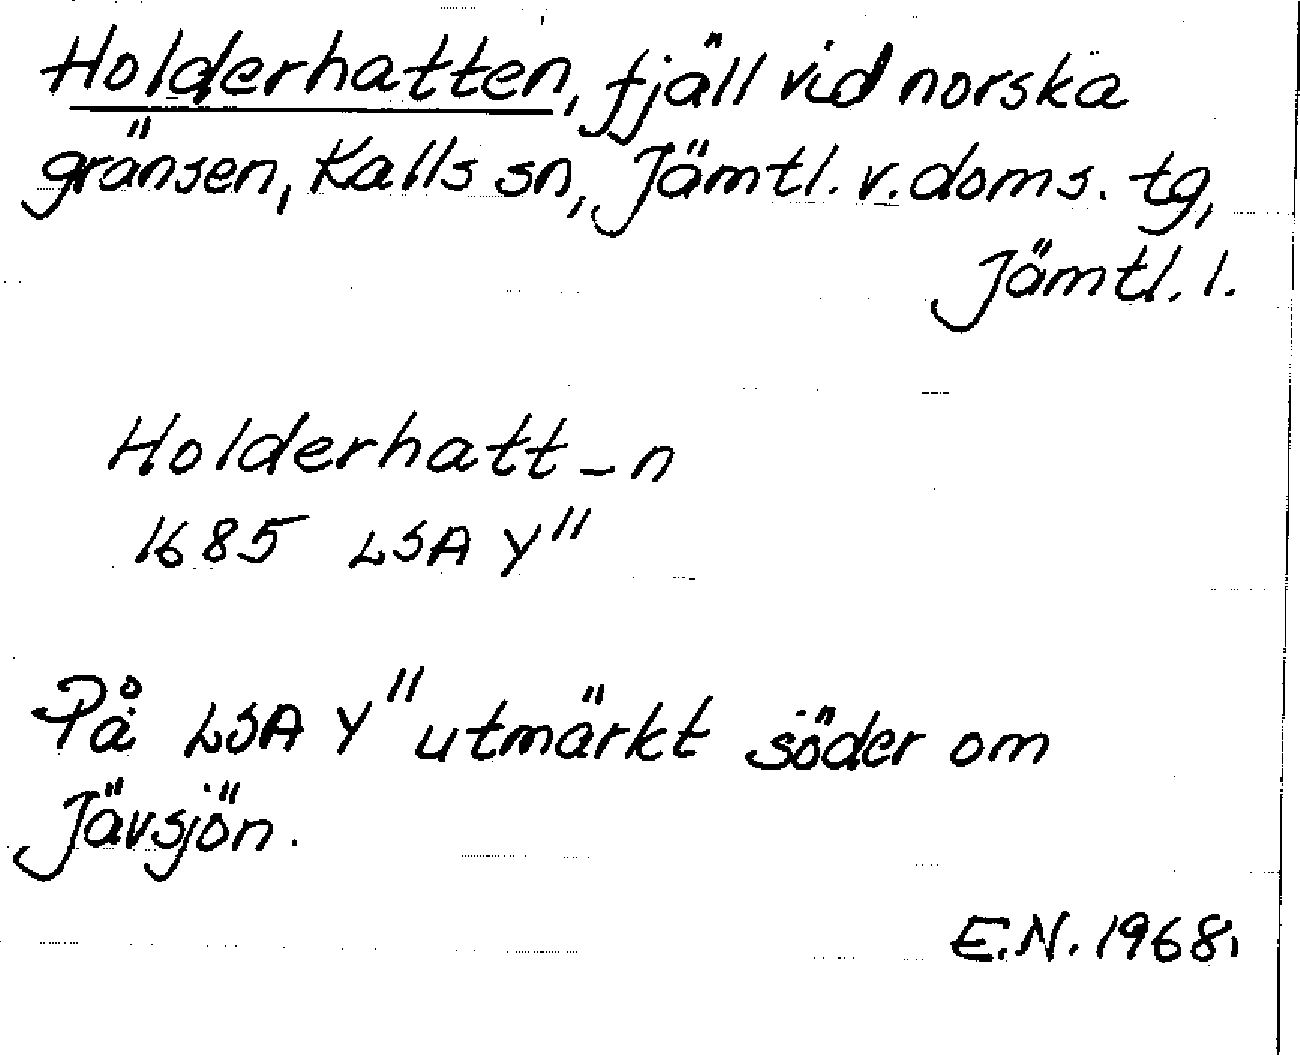 Holderhatten, fjäll vid norska
gränsen, Kalls sn, Jämtl. v. doms. tg,
Jämtl. l.
Holderhatt-n
1685 LSA Y"
På LSA Y" utmärkt söder om
Jävsjön.
E.N. 1968.